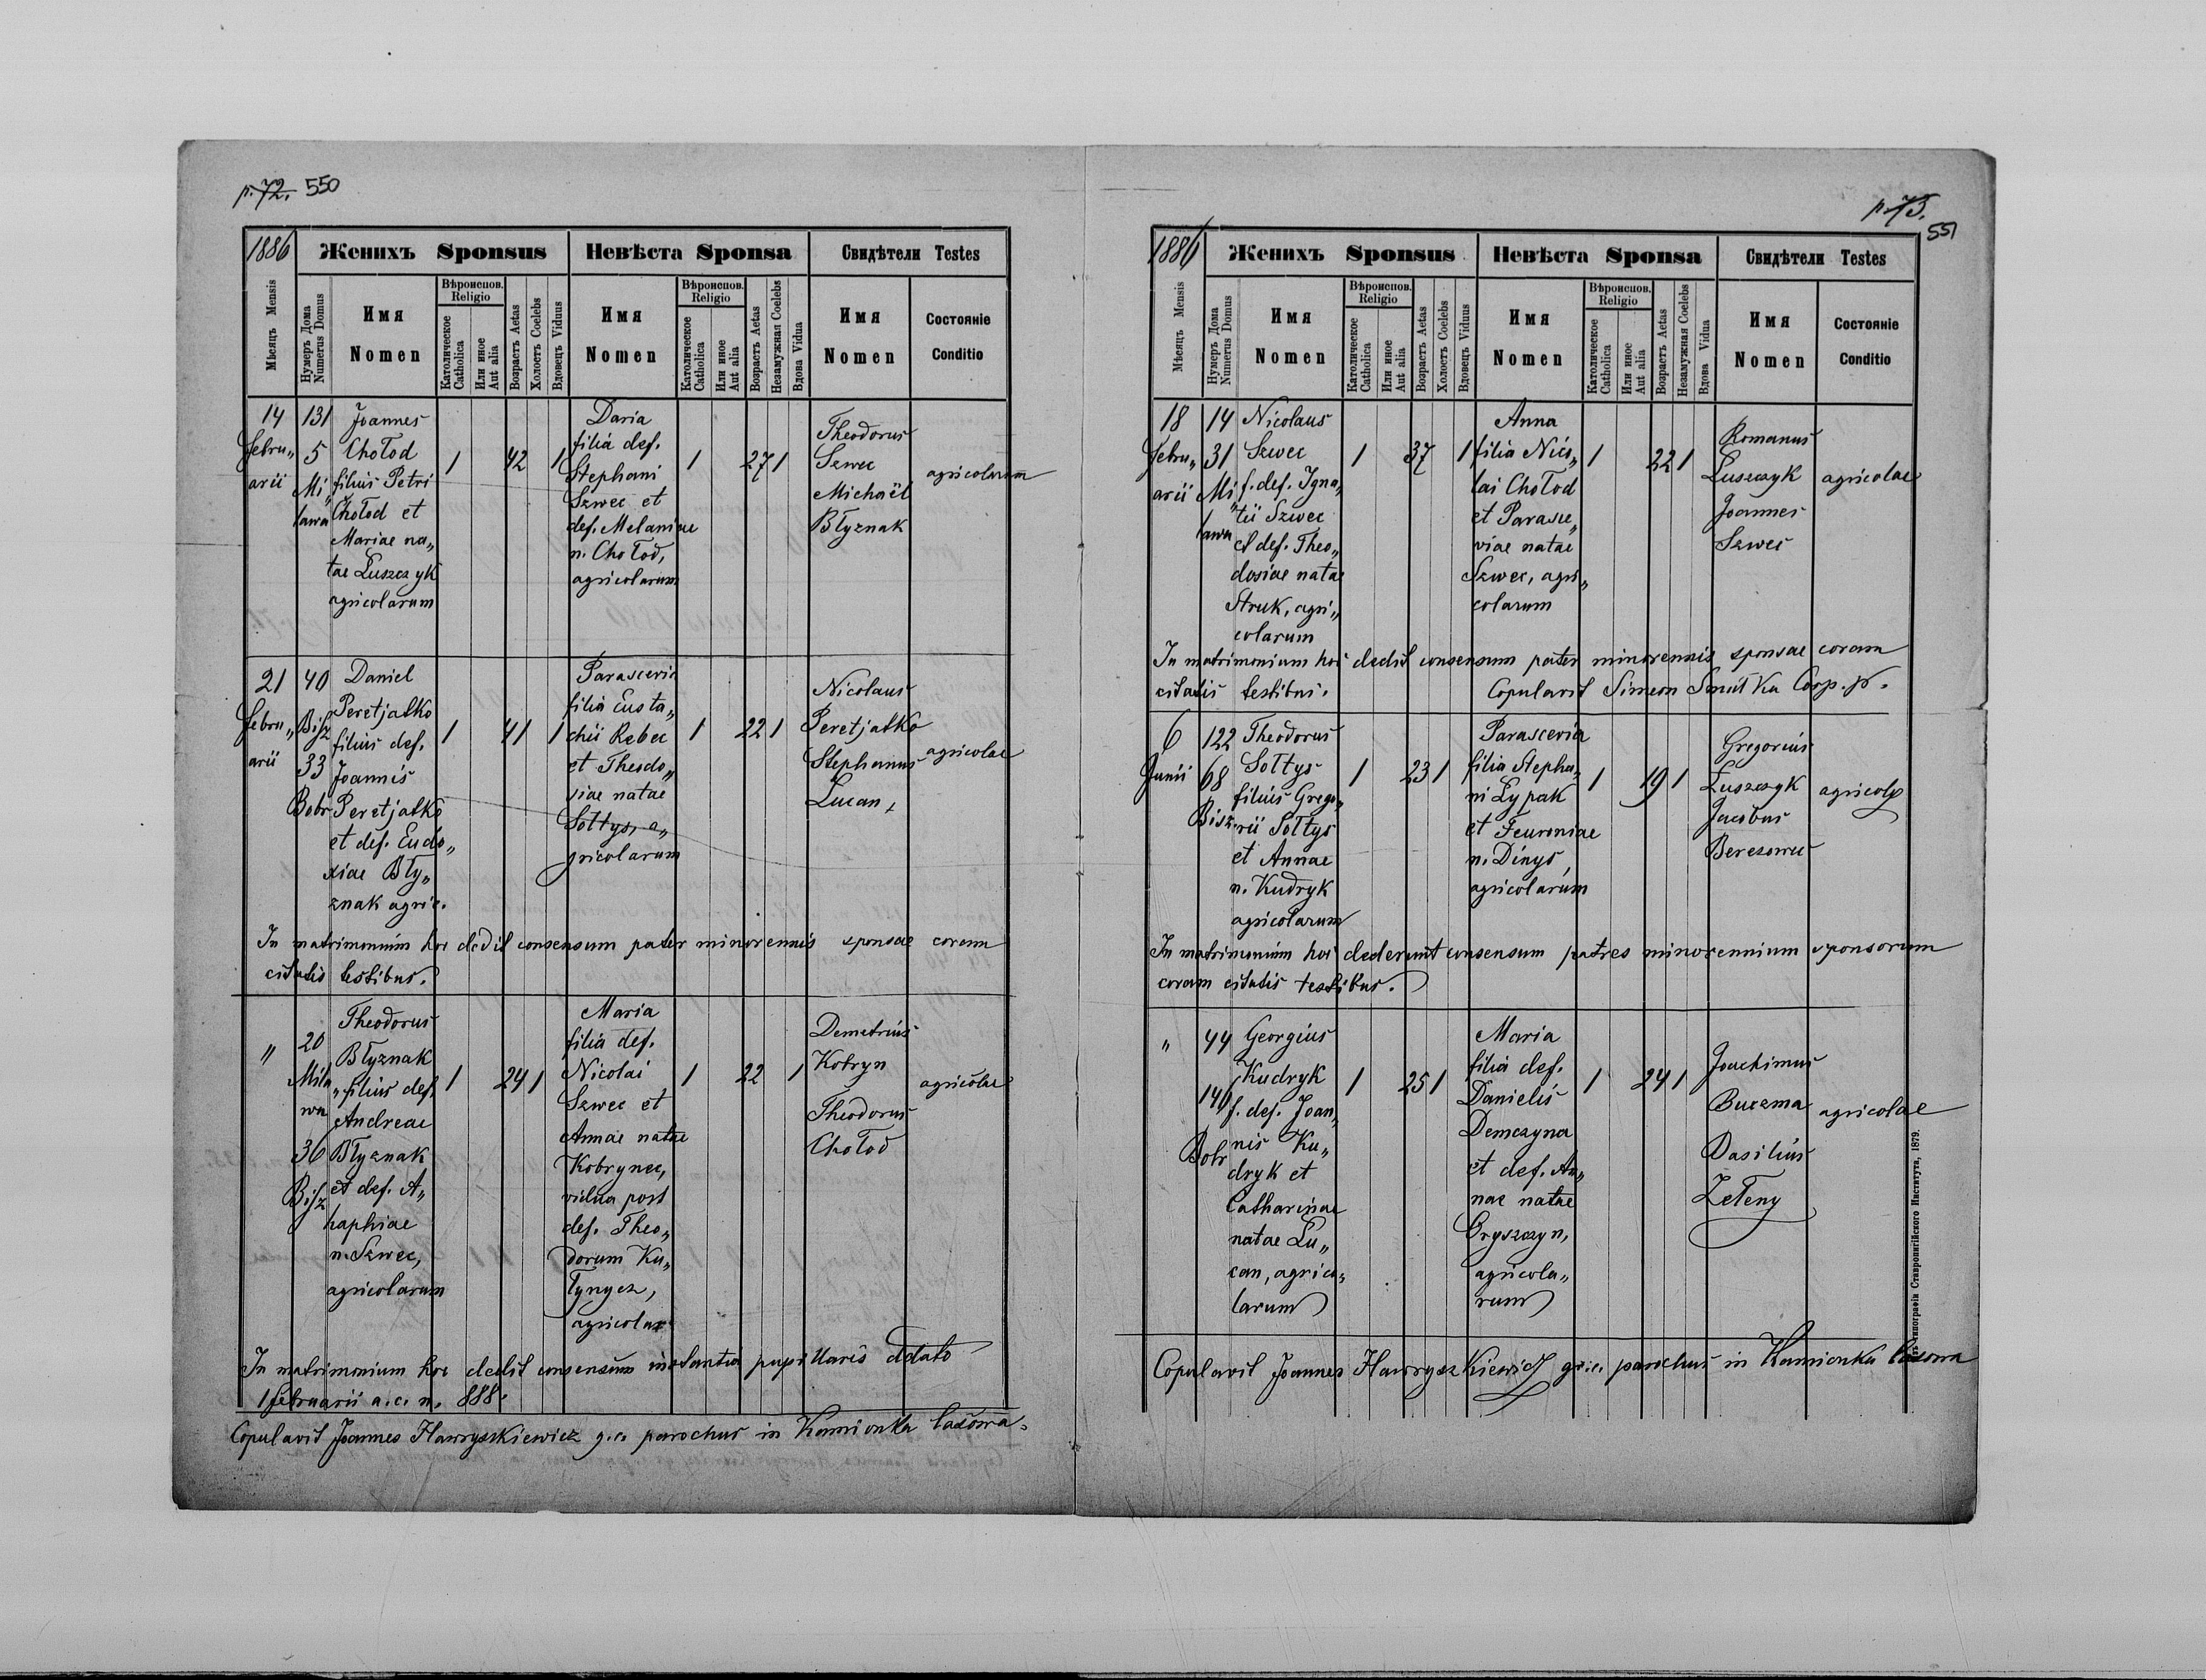 p. 72. 550
1886 Женихъ Sponsus Невѣста Sponsa Свидѣтели Testes
Мѣсяцъ Mensis
Нумеръ Дома Numerus Domus
Имя Nomen
Вѣроиспов. Religio
Католическое Catholica
Или иное Aut alia
Возрастъ Aetas
Холостъ Coelebs
Вдовецъ Viduus
Имя Nomen
Вѣроиспов. Religio
Католическое Catholica
Или иное Aut alia
Возрастъ Aetas
Незамужная Coelebs
Вдова Vidua
Имя Nomen
Состояніе Conditio
14
febru„
arii
131
5
Mi„
lawa
Joannes
Chołod
filius Petri
Chołod et
Mariae na„
tae Łuszczyk
agricolarum
1 42 1
Daria
filia def.
Stephani
Szwec et
def. Melaniae
n. Chołod,
agricolarum
1 27 1
Theodorus
Szwec
Michaël
Błyznak
agricolarum
21
febru„
arii
40
Bisz
33
Bobr
Daniel
Peretjatko
filius def.
Joannis
Peretjatko
et def. Eudo„
xiae Bły„
znak agric.
1 41 1
Parascevia
filia Eusta„
chii Rebec
et Theodo„
siae natae
Sołtys, a„
gricolarum
1 22 1
Nicolaus
Peretjatko
Stephanus
Lucan
agricolae
In matrimonium hoc dedit consensum pater minorennis sponsae coram
citatis testibus.
„
20
Miła
wa
36
Bisz
Theodorus
Błyznak
filius def.
Andreae
Błyznak
et def. A„
haphiae
n. Szwec,
agricolarum
1 24 1
Maria
filia def.
Nicolai
Szwec et
Annae natae
Kobrynec,
vidua post
def. Theo„
dorum Ku„
łynycz,
agricolae
1 22 1
Demetrius
Kobryn
Theodorus
Chołod
agricolae
In matrimonium hoc dedit consensum instantia pupillaris ddato
1 februarii a. c. n. 888.
Copulavit Joannes Hawryszkiewicz g. c. parochus in Kamionka lasowa.
p. 73.
551
1886 Женихъ Sponsus Невѣста Sponsa Свидѣтели Testes
Мѣсяцъ Mensis
Нумеръ Дома Numerus Domus
Имя Nomen
Вѣроиспов. Religio
Католическое Catholica
Или иное Aut alia
Возрастъ Aetas
Холостъ Coelebs
Вдовецъ Viduus
Имя Nomen
Вѣроиспов. Religio
Католическое Catholica
Или иное Aut alia
Возрастъ Aetas
Незамужная Coelebs
Вдова Vidua
Имя Nomen
Состояніе Conditio
18
febru„
arii
14
31
Mi„
lawa
Nicolaus
Szwec
f. def. Igna„
tii Szwec
et def. Theo„
dosiae natae
Struk, agri„
colarum
1 37 1
Anna
filia Nico„
lai Chołod
et Parasce„
viae natae
Szwec, agri„
colarum
1 22 1
Romanus
Łuszczyk
Joannes
Szwec
agricolae
In matrimonium hoc dedit consensum pater minorennis sponsae coram
citatis testibus. Copulavit Simeon Smutka Coop. p.
6
Junii
122
68
Bisz
Theodorus
Sołtys
filius Grego„
rii Sołtys
et Annae
n. Kudryk
agricolarum
1 23 1
Parascevia
filia Stepha„
ni Łypak
et Feuroniae
n. Dinys,
agricolarum
1 19 1
Gregorius
Łuszczyk
Jacobus
Berezowec
agricolae
In matrimonium hoc dederunt consensum patres minorennium sponsorum
coram citatis testibus.
„
44
140
Bobr
Georgius
Kudryk
f. def. Joan„
nis Ku„
dryk et
Catharinae
natae Lu„
can, agrico„
larum
1 25 1
Maria
filia def.
Danielis
Demczyna
et def. An„
nae natae
Oryszczyn,
agricola„
rum
1 24 1
Joachimus
Buczma
Basilius
Zełeny
agricolae
Copulavit Joannes Hawryszkiewicz gr. c. parochus in Kamionka lasowa
типографіи Ставропигійского Института, 1879.